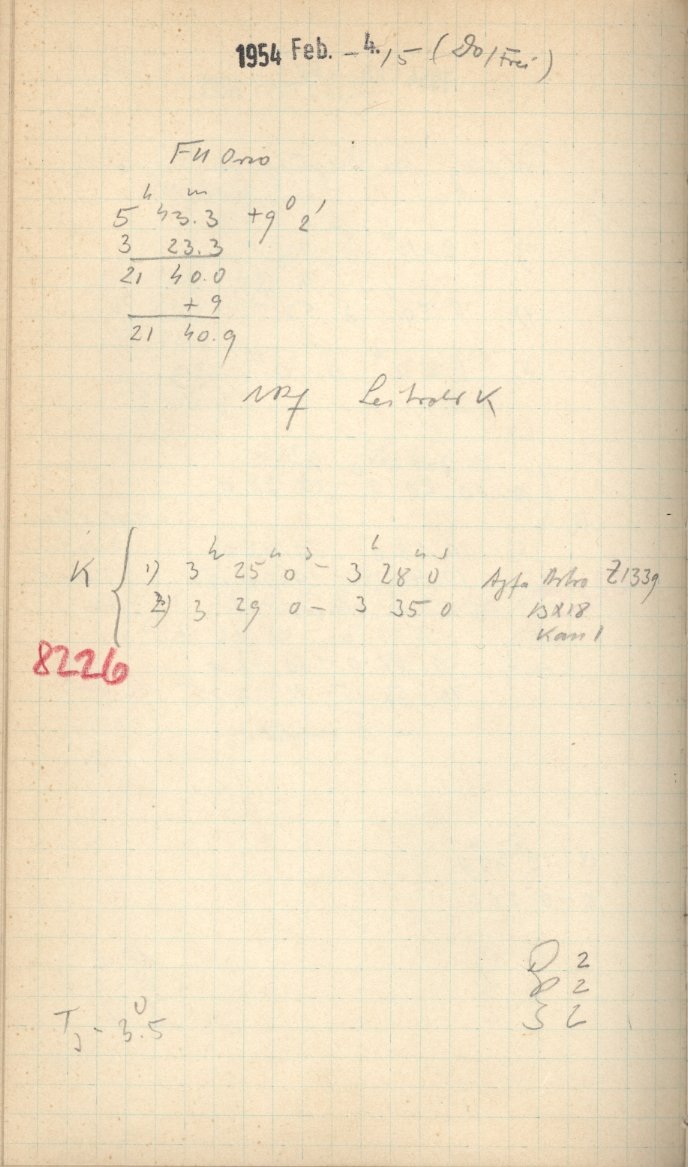 1954 Feb. - 4./5 (Do/Frei)
FU Orio
5 h 43.3 m +9° 2'
3 23.3
21 40.0
+ 9
21 40.9
K
K { 1) 3 h 25 m 0 s - 3 h 28 m 0 s Agfa Astro Z1339
2) 3 29 0 - 3 35 0 13x18
Kass 1
8226
2
2
T - 3°.5
3 2